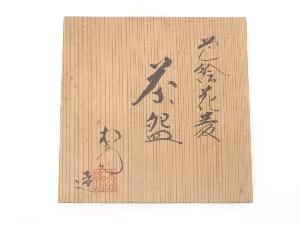 色絵花菱
茶盌
造